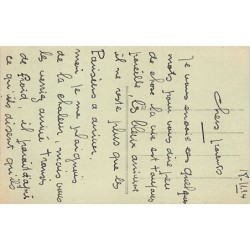 18/1/14
Chers parents
Je vous envoie ces quelques
mots pour vous dire peu
de chose la vie est toujours
pareille, les bleus arrivent
il ne reste plus que les
Parisiens a arriver.
mais je me plaignais
de la chaleur, mais vous
les verrez arrivé transis
de froid, il parait d'après
ce qu'ils disent qu'ils